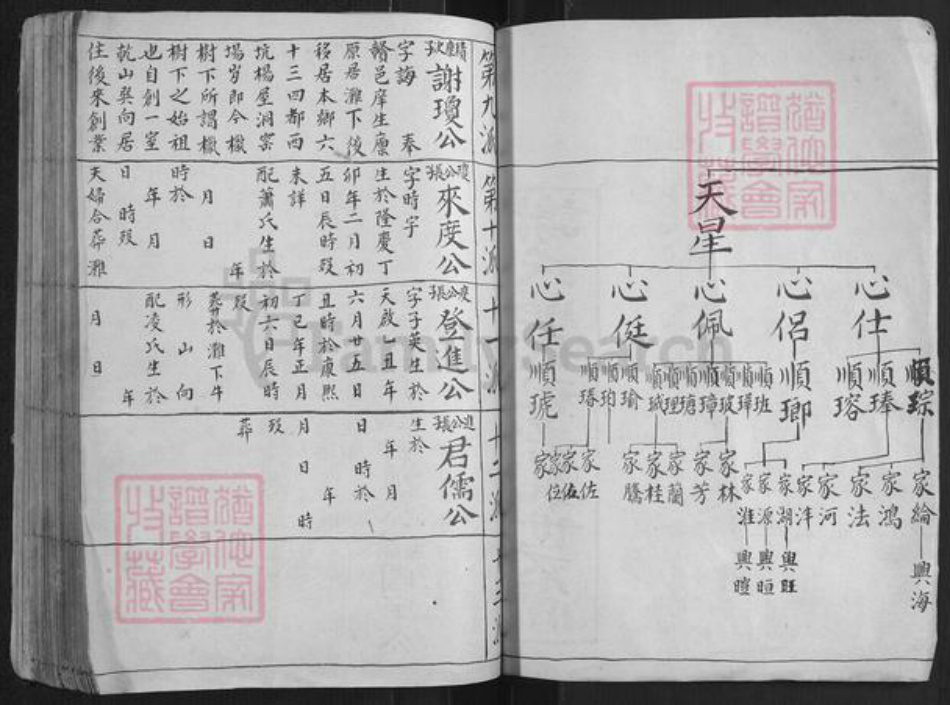 天星
心仕
心侶
心佩
心侹
心任
順琮
順瑃
順瑢
順瑯
順班
順璍
順玻
順璋
順瑭
順理
順珹
順瑜
順珀
順瑃
順琥
家綸
家鴻
家法
家河
家洋
家湖
家源
家淮
家林
家芳
家蘭
家桂
家騰
家佐
家伍
家位
家
興海
興旺
興晅
興暟
第九派
謝瓊公
字誨 奉
贍邑庠生廩
原居灘下後
移居本鄉六
十三四都西
坑楊屋洞窑
場岁即今樾
樹下所謂樾
樹下之始祖
也自創一室
乾山巽向居
住後來創業
第十派
瓊公長子
來度公
字時宇
生於隆慶丁
卯年二月初
五日辰時歿
未詳
配蕭氏生於
年
月 日
時於
年 月
日 時歿
夫婦合葬灘
十一派
度公長子
登進公
字子英生於
天啟乙丑年
六月廿五日
丑時於康熙
丁巳年正月
初六日辰時
歿
葬於灘下牛
形 山 向
配凌氏生於
年
月 日
十二派
進公長子
君儒公
生於
年 月
日 時於
年
月 日 時
歿
葬
十三派
譜學會
收藏
FamilySearch